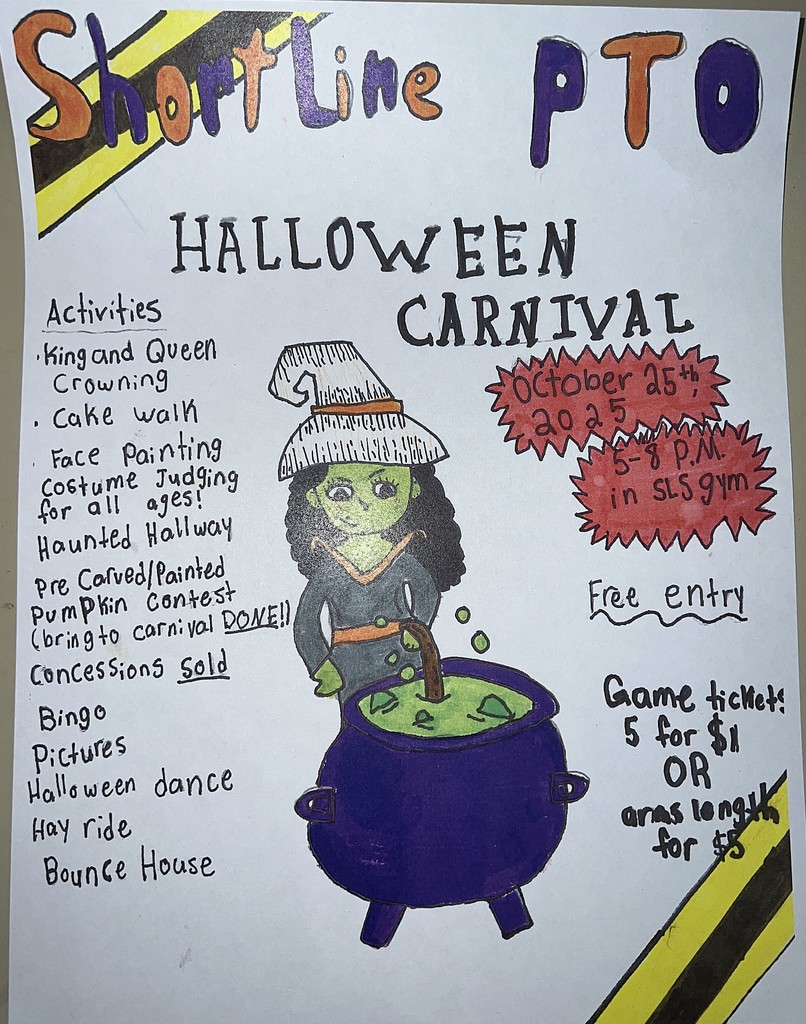 Short Line PTO
HALLOWEEN
CARNIVAL
Activities
· King and Queen
Crowning
· Cake walk
· Face Painting
Costume Judging
for all ages!
Haunted Hallway
Pre Carved/Painted
Pumpkin Contest
(bring to carnival DONE!!
Concessions sold
Bingo
Pictures
Halloween dance
Hay ride
Bounce House
October 25th,
2025
5-8 P.M.
in SLS gym
Free entry
Game tickets
5 for $1
OR
arms length
for $5